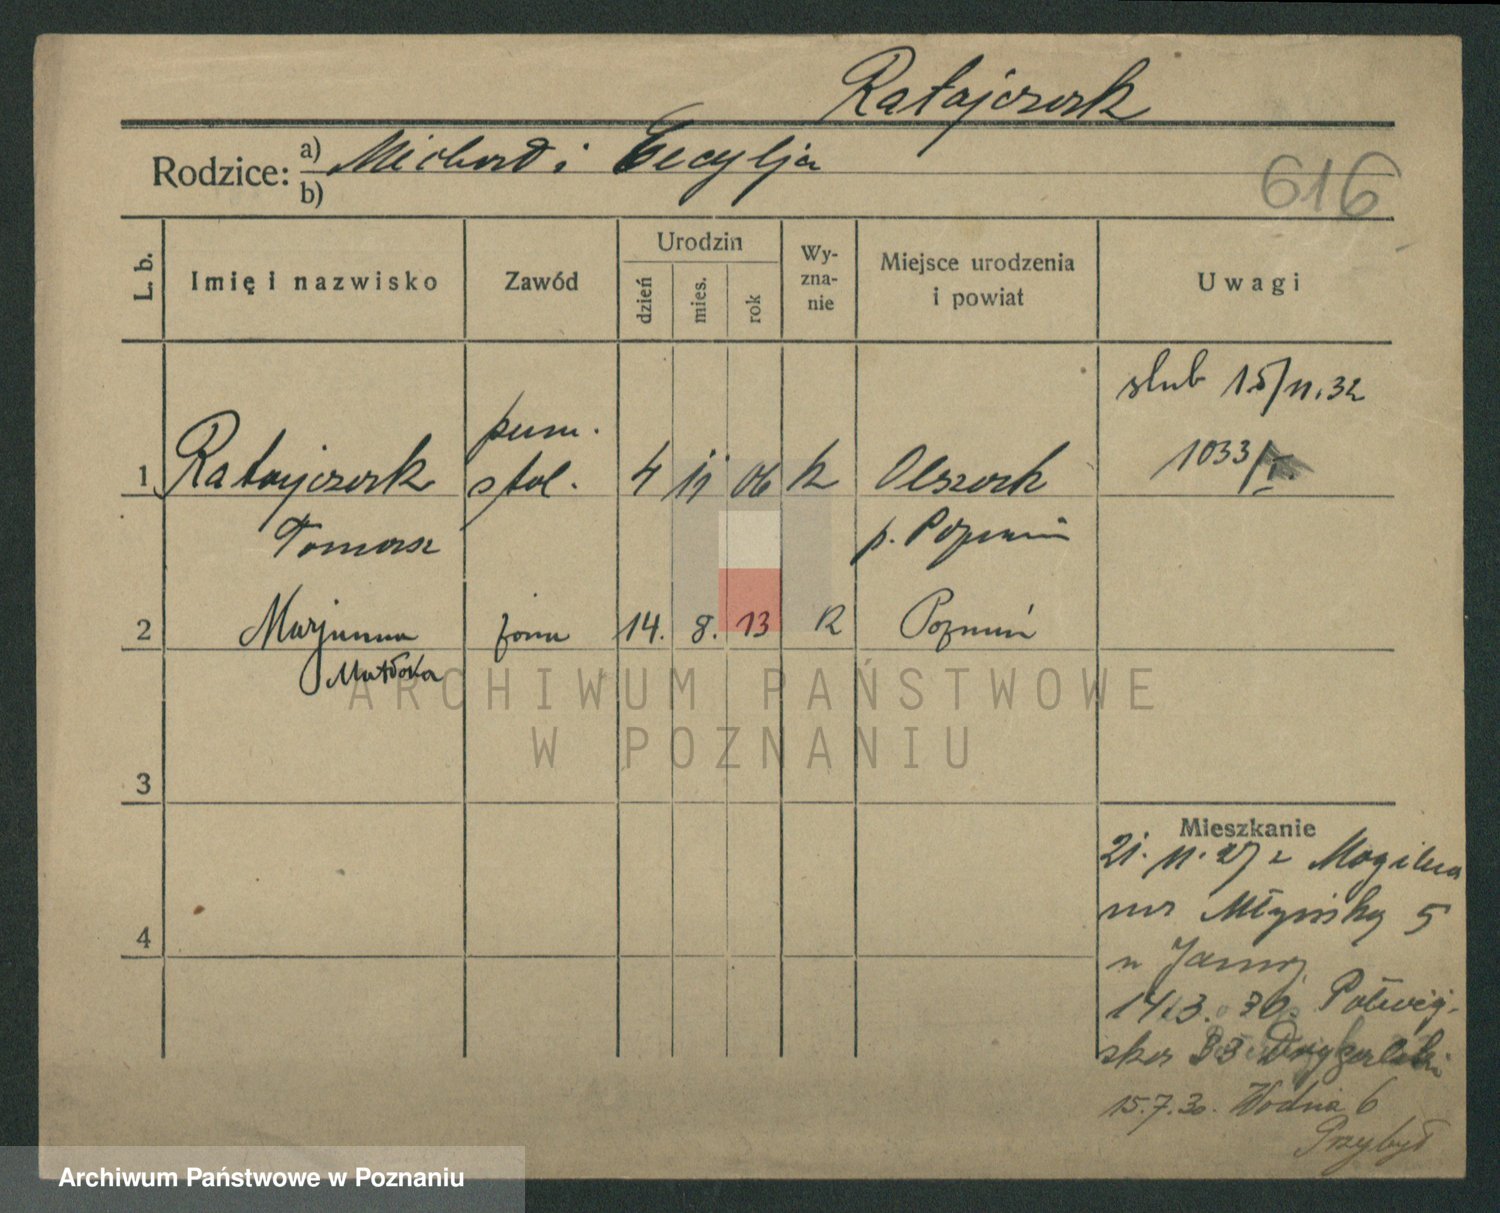 Ratajczak
Rodzice: a) Michał i Cecylja
b)
616
L. b. Imię i nazwisko Zawód Urodzin dzień mies. rok Wy-zna-nie Miejsce urodzenia i powiat Uwagi
ślub 15/11.32
1033/I.
1 Ratajczak pom. stol. 4 11 06 k Olszak
Tomasz p. Poznań
2 Marjanna żona 14. 8. 13 k Poznań
Matłoka
3
4
Mieszkanie
21. 11. 27 z Mogilna
na Młyńską 5
14.3.30. Półwiej-
ska 33
15.7.30. Wodna 6
Przybył
ARCHIWUM PAŃSTWOWE
W POZNANIU
Archiwum Państwowe w Poznaniu